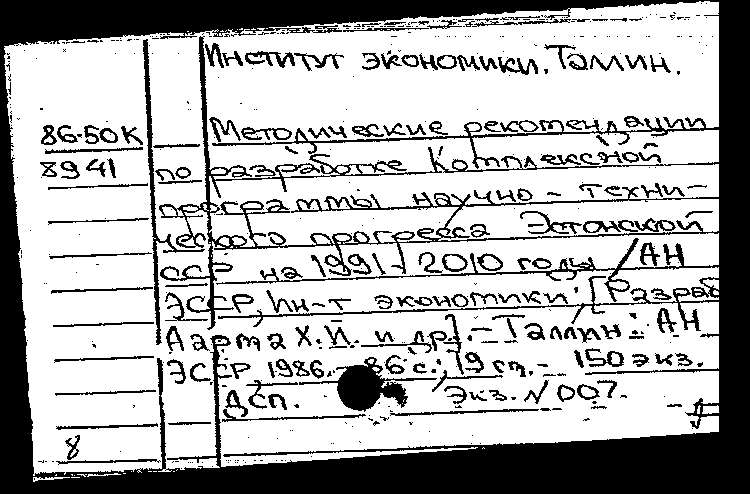 Институт экономики. Таллин.
86-50К
8941
Методические рекомендации
по разработке Комплексной
программы научно-техни-
ческого прогресса Эстонской
ССР на 1991-2010 годы / АН
ЭССР, Ин-т экономики; [Разраб
Аарма Х.Й. и др]. - Таллин: АН
ЭССР, 1986. - 86 с.; 19 см. - 150 экз.
ДСП. Экз. N 007.
8